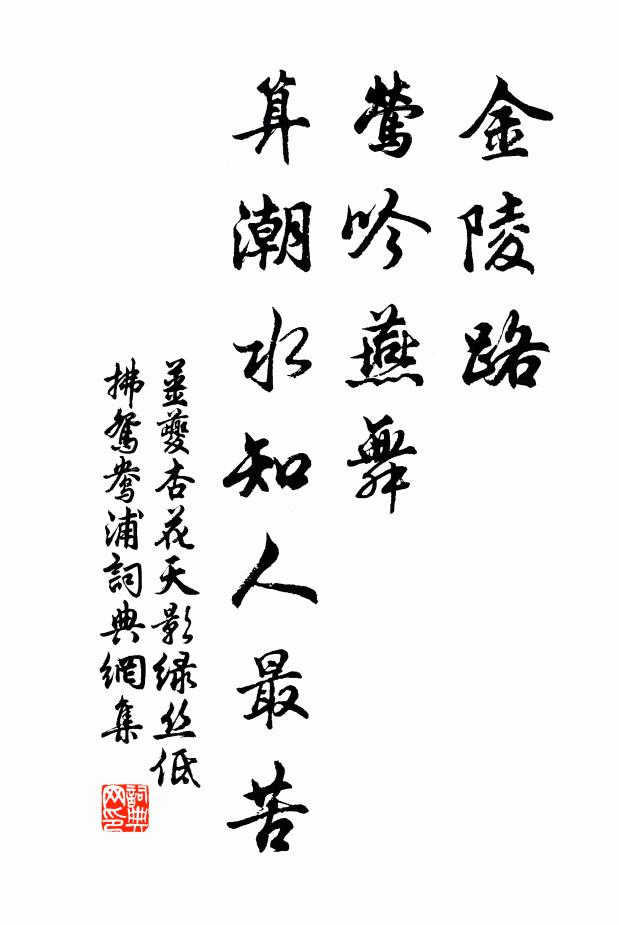 金陵路
鶯吟燕舞
算潮水知人最苦
姜夔杏花天影绿丝低
拂鴛鴦浦詞典網集
詞典网印